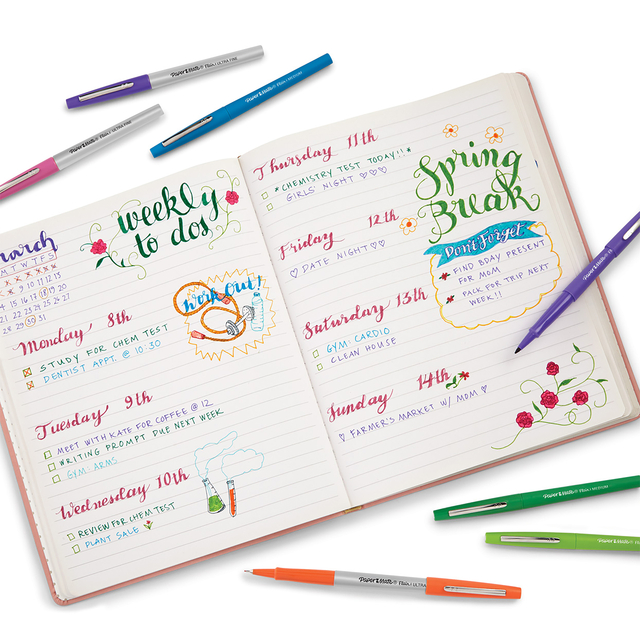 Paper Mate Flair ULTRA FINE
Paper Mate Flair MEDIUM
Paper Mate Flair ULTRA FINE
weekly
to dos
March
M T W T F S
8 9 10 11 12 13
28 29 30 31
Monday 8th
STUDY FOR CHEM TEST
DENTIST APPT. @ 10:30
Work Out!
Tuesday 9th
MEET WITH KATE FOR COFFEE @ 12
WRITING PROMPT DUE NEXT WEEK
GYM: ARMS
Wednesday 10th
REVIEW FOR CHEM TEST
PLANT SALE
Thursday 11th
*CHEMISTRY TEST TODAY!!*
GIRLS' NIGHT ♡♡♡
Friday 12th
♡ DATE NIGHT ♡♡
Saturday 13th
GYM: CARDIO
CLEAN HOUSE
Sunday 14th
♡ FARMER'S MARKET W/ MOM ♡
Spring
Break
Don't Forget
FIND BDAY PRESENT
FOR MOM
PACK FOR TRIP NEXT
WEEK!!
Paper Mate
Paper Mate Flair MEDIUM
Paper Mate Flair
Paper Mate Flair ULTRA